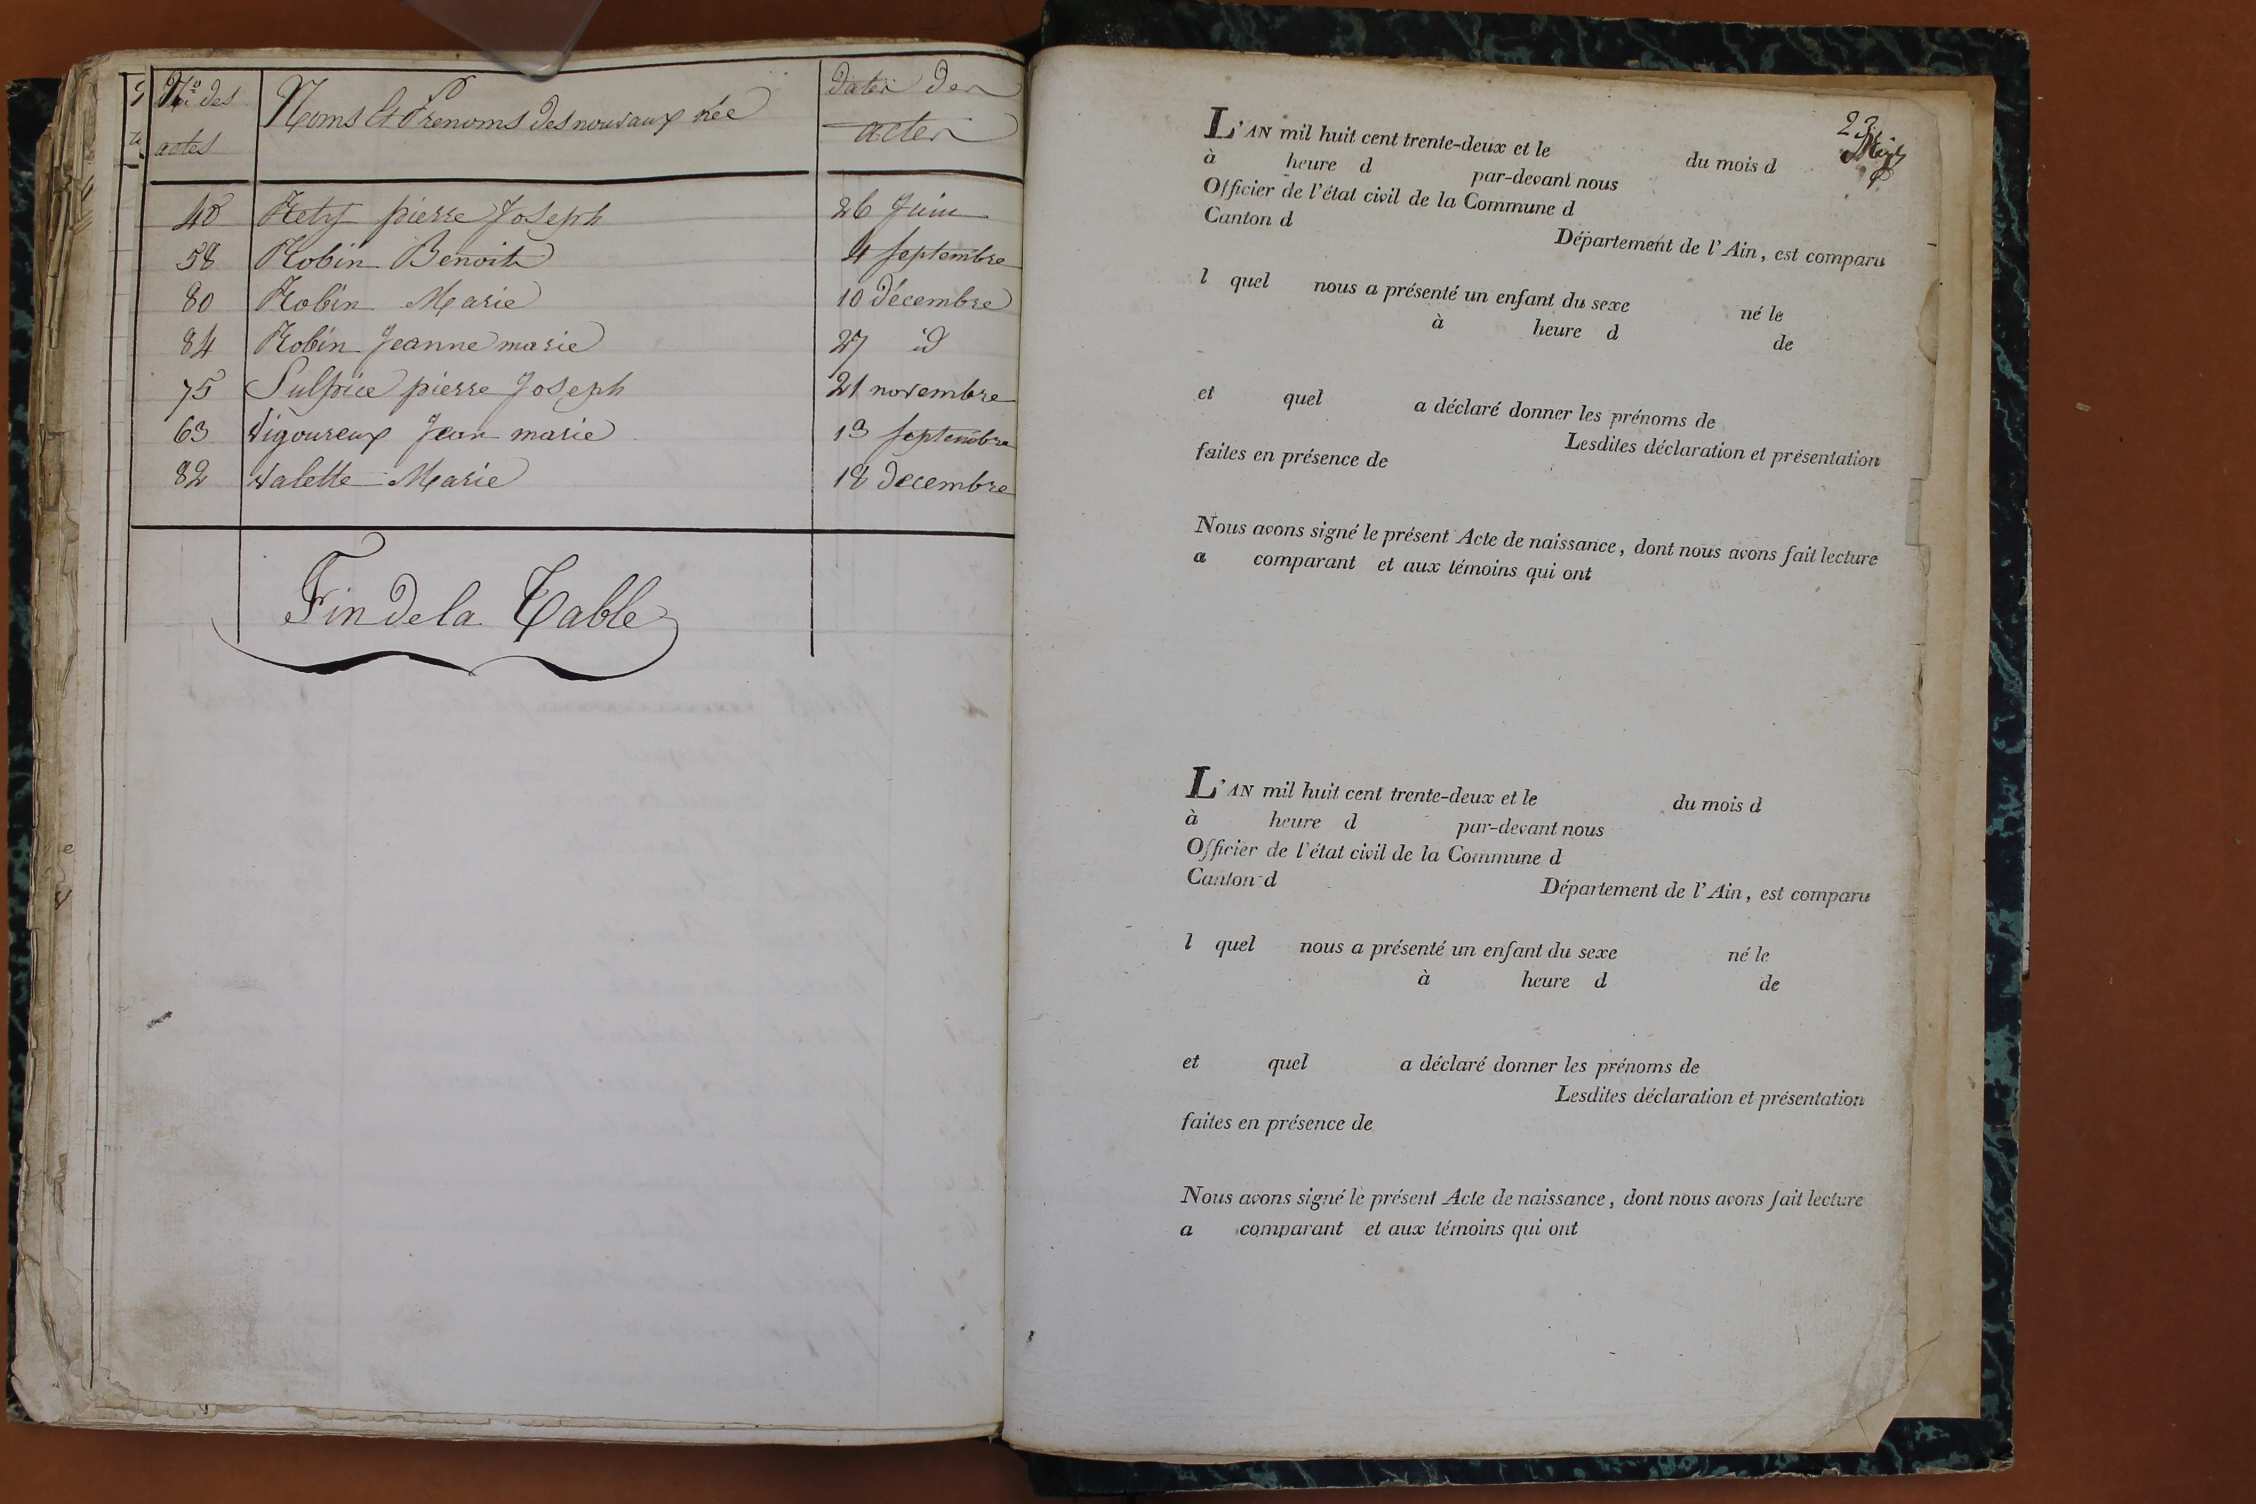 Nos. des actes Noms Et Prenoms des nouveaux née Dates Des actes
48 Rety pierre Joseph 26 Juin
58 Robin Benoit 4 septembre
80 Robin Marie 10 Décembre
84 Robin Jeanne marie 27 id
75 Sulpice pierre Joseph 21 novembre
63 vigoureux Jean marie 13 septembre
82 valette Marie 18 decembre
Fin de la Table
23
L'AN mil huit cent trente-deux et le du mois d
à heure d par-devant nous
Officier de l'état civil de la Commune d
Canton d Département de l'Ain, est comparu
l quel nous a présenté un enfant du sexe né le
à heure d de
et quel a déclaré donner les prénoms de
Lesdites déclaration et présentation
faites en présence de
Nous avons signé le présent Acte de naissance, dont nous avons fait lecture
a comparant et aux témoins qui ont
L'AN mil huit cent trente-deux et le du mois d
à heure d par-devant nous
Officier de l'état civil de la Commune d
Canton d Département de l'Ain, est comparu
l quel nous a présenté un enfant du sexe né le
à heure d de
et quel a déclaré donner les prénoms de
Lesdites déclaration et présentation
faites en présence de
Nous avons signé le présent Acte de naissance, dont nous avons fait lecture
a comparant et aux témoins qui ont